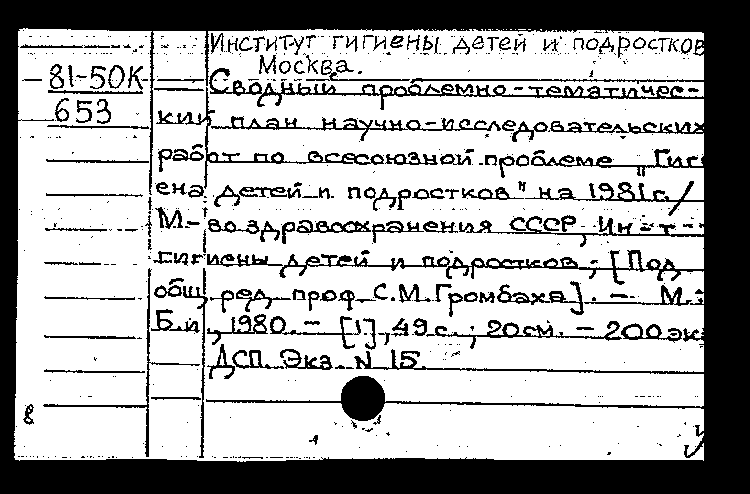 Институт гигиены детей и подростков
Москва.
81-50К
653
Сводный проблемно-тематичес-
кий план научно-исследовательских
работ по всесоюзной проблеме „Гиги
ена детей и подростков" на 1981г./
М-во здравоохранения СССР, Ин-т
гигиены детей и подростков; [Под
общ. ред. проф. С.М.Громбаха]. - М.:
Б.и., 1980. - [1], 49 с.; 20 см. - 200 экз
ДСП. Экз. N 15.
8